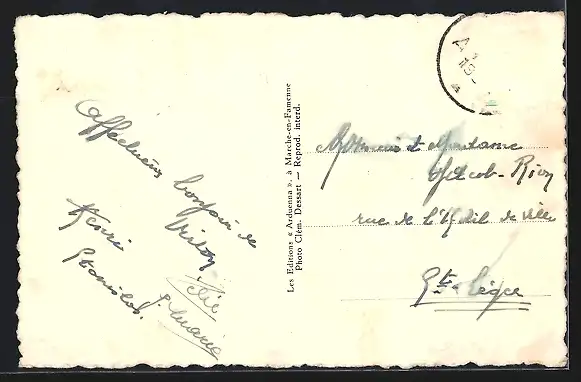 Affectueux bonjour de
Virton
Henri
Stanislas.
Les Editions « Arduenna », à Marche-en-Famenne
Photo Clém. Dessart — Reprod. interd.
Monsieur et Madame
Jacob-Rion
rue de l'Hôtel de ville
St-Léger